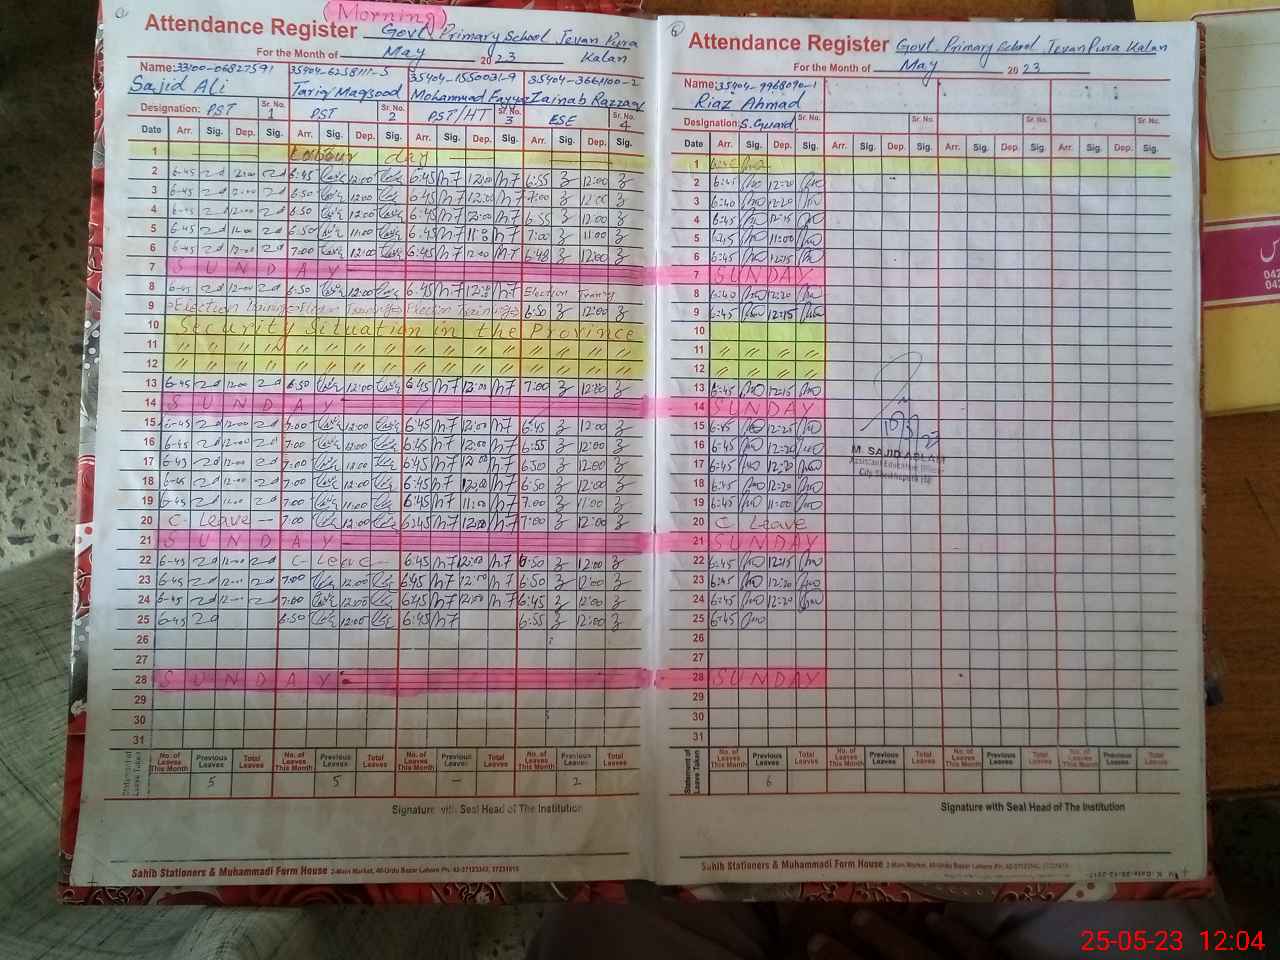 (Morning)
Attendance Register Govt. Primary School Jevan Pura Kalan
For the Month of May 2023
Name: 33100-0682759-1 35404-6258111-5 35404-1550031-9 35404-3661100-2
Sajid Ali Tariq Maqsood Mohammad Fayyaz Zainab Razzaq
Designation: PST Sr. No. 1 PST Sr. No. 2 PST/HT Sr. No. 3 ESE Sr. No. 4
Date Arr. Sig. Dep. Sig. Arr. Sig. Dep. Sig. Arr. Sig. Dep. Sig. Arr. Sig. Dep. Sig.
1 Labour day
2 6-45 12:00 6:45 12:00 6:45 12:00 6:55 12:00
3 6-45 12:00 6:50 12:00 6:45 12:00 7:00 12:00
4 6-45 12:00 6:50 12:00 6:45 12:00 6:55 12:00
5 6-45 11:00 6:50 11:00 6:45 11:00 7:00 11:00
6 6-45 12:00 7:00 12:00 6:45 12:00 6:48 12:00
7 SUNDAY
8 6-45 12:00 6:50 12:00 6:45 12:00 Election Training
9 Election Training Election Training Election Training 6:50 12:00
10 Security Situation in the Province
11 " " " " " " " " " " " " " " " "
12 " " " " " " " " " " " " " " " "
13 6-45 12:00 6:50 12:00 6:45 12:00 7:00 12:00
14 SUNDAY
15 6-45 12:00 7:00 12:00 6:45 12:00 6:45 12:00
16 6-45 12:00 7:00 12:00 6:45 12:00 6:55 12:00
17 6-45 12:00 7:00 12:00 6:45 12:00 6:50 12:00
18 6-45 12:00 7:00 12:00 6:45 12:00 6:50 12:00
19 6-45 11:00 7:00 11:00 6:45 11:00 7:00 11:00
20 C. Leave 7:00 12:00 6:45 12:00 7:00 12:00
21 SUNDAY
22 6-45 12:00 C-Leave 6:45 12:00 6:50 12:00
23 6-45 12:00 7:00 12:00 6:45 12:00 6:50 12:00
24 6-45 12:00 7:00 12:00 6:45 12:00 6:45 12:00
25 6-45 6:50 12:00 6:45 6:55 12:00
26
27
28 SUNDAY
29
30
31
Statement of Leave Taken No. of Leaves This Month Previous Leaves Total Leaves No. of Leaves This Month Previous Leaves Total Leaves No. of Leaves This Month Previous Leaves Total Leaves No. of Leaves This Month Previous Leaves Total Leaves
5 5 - 2
Signature with Seal Head of The Institution
Sahib Stationers & Muhammadi Form House 2-Main Market, 40-Urdu Bazar Lahore Ph: 42-37123343, 37231915
Attendance Register Govt. Primary School Jevan Pura Kalan
For the Month of May 2023
Name: 35404-9968090-1
Riaz Ahmad
Designation: S. Guard Sr. No. Sr. No. Sr. No. Sr. No.
Date Arr. Sig. Dep. Sig. Arr. Sig. Dep. Sig. Arr. Sig. Dep. Sig. Arr. Sig. Dep. Sig.
1
2 6:45 12:20
3 6:40 12:20
4 6:45 12:15
5 6:45 11:00
6 6:45 12:15
7 SUNDAY
8 6:40 12:20
9 6:45 12:15
10
11 " " " "
12 " " " "
13 6:45 12:15
14 SUNDAY
15 6:45 12:25
16 6:45 12:20
17 6:45 12:20
18 6:45 12:20
19 6:45 11:00
20 C Leave
21 SUNDAY
22 6:45 12:15
23 6:45 12:20
24 6:45 12:20
25 6:45
26
27
28 SUNDAY
29
30
31
M. SAJID ASLAM
Assistant Education Officer
Statement of Leave Taken No. of Leaves This Month Previous Leaves Total Leaves No. of Leaves This Month Previous Leaves Total Leaves No. of Leaves This Month Previous Leaves Total Leaves No. of Leaves This Month Previous Leaves Total Leaves
6
Signature with Seal Head of The Institution
Sahib Stationers & Muhammadi Form House 2-Main Market, 40-Urdu Bazar Lahore Ph: 42-37123343, 37231915
25-05-23 12:04